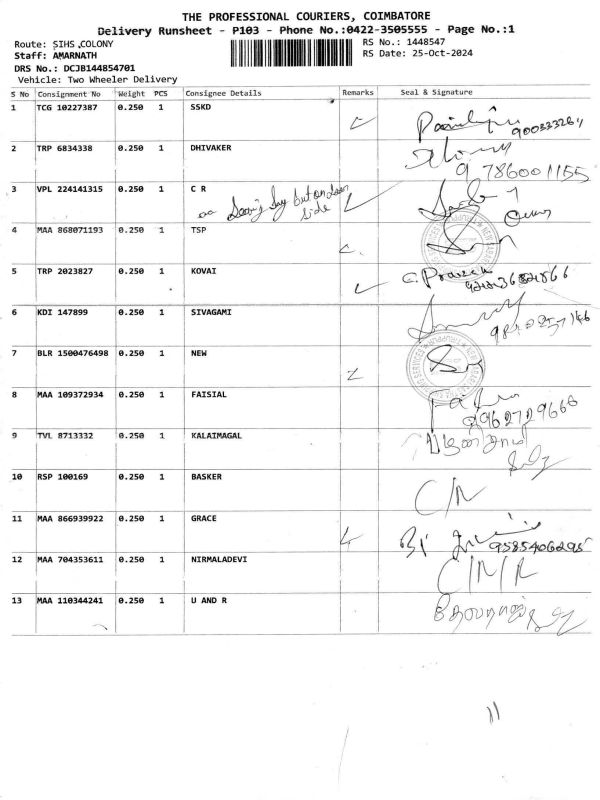 THE PROFESSIONAL COURIERS, COIMBATORE
Delivery Runsheet - P103 - Phone No.:0422-3505555 - Page No.:1
Route: SIHS COLONY
RS No.: 1448547
Staff: AMARNATH
RS Date: 25-Oct-2024
DRS No.: DCJB144854701
Vehicle: Two Wheeler Delivery
S No Consignment No Weight PCS Consignee Details Remarks Seal & Signature
1 TCG 10227387 0.250 1 SSKD
2 TRP 6834338 0.250 1 DHIVAKER
9 786001155
3 VPL 224141315 0.250 1 C R
side
4 MAA 868071193 0.250 1 TSP
5 TRP 2023827 0.250 1 KOVAI
6 KDI 147899 0.250 1 SIVAGAMI
7 BLR 1500476498 0.250 1 NEW
8 MAA 109372934 0.250 1 FAISIAL
9962729668
9 TVL 8713332 0.250 1 KALAIMAGAL
10 RSP 100169 0.250 1 BASKER
C/R
11 MAA 866939922 0.250 1 GRACE
9585406295
12 MAA 704353611 0.250 1 NIRMALADEVI
C/R/R
13 MAA 110344241 0.250 1 U AND R
11